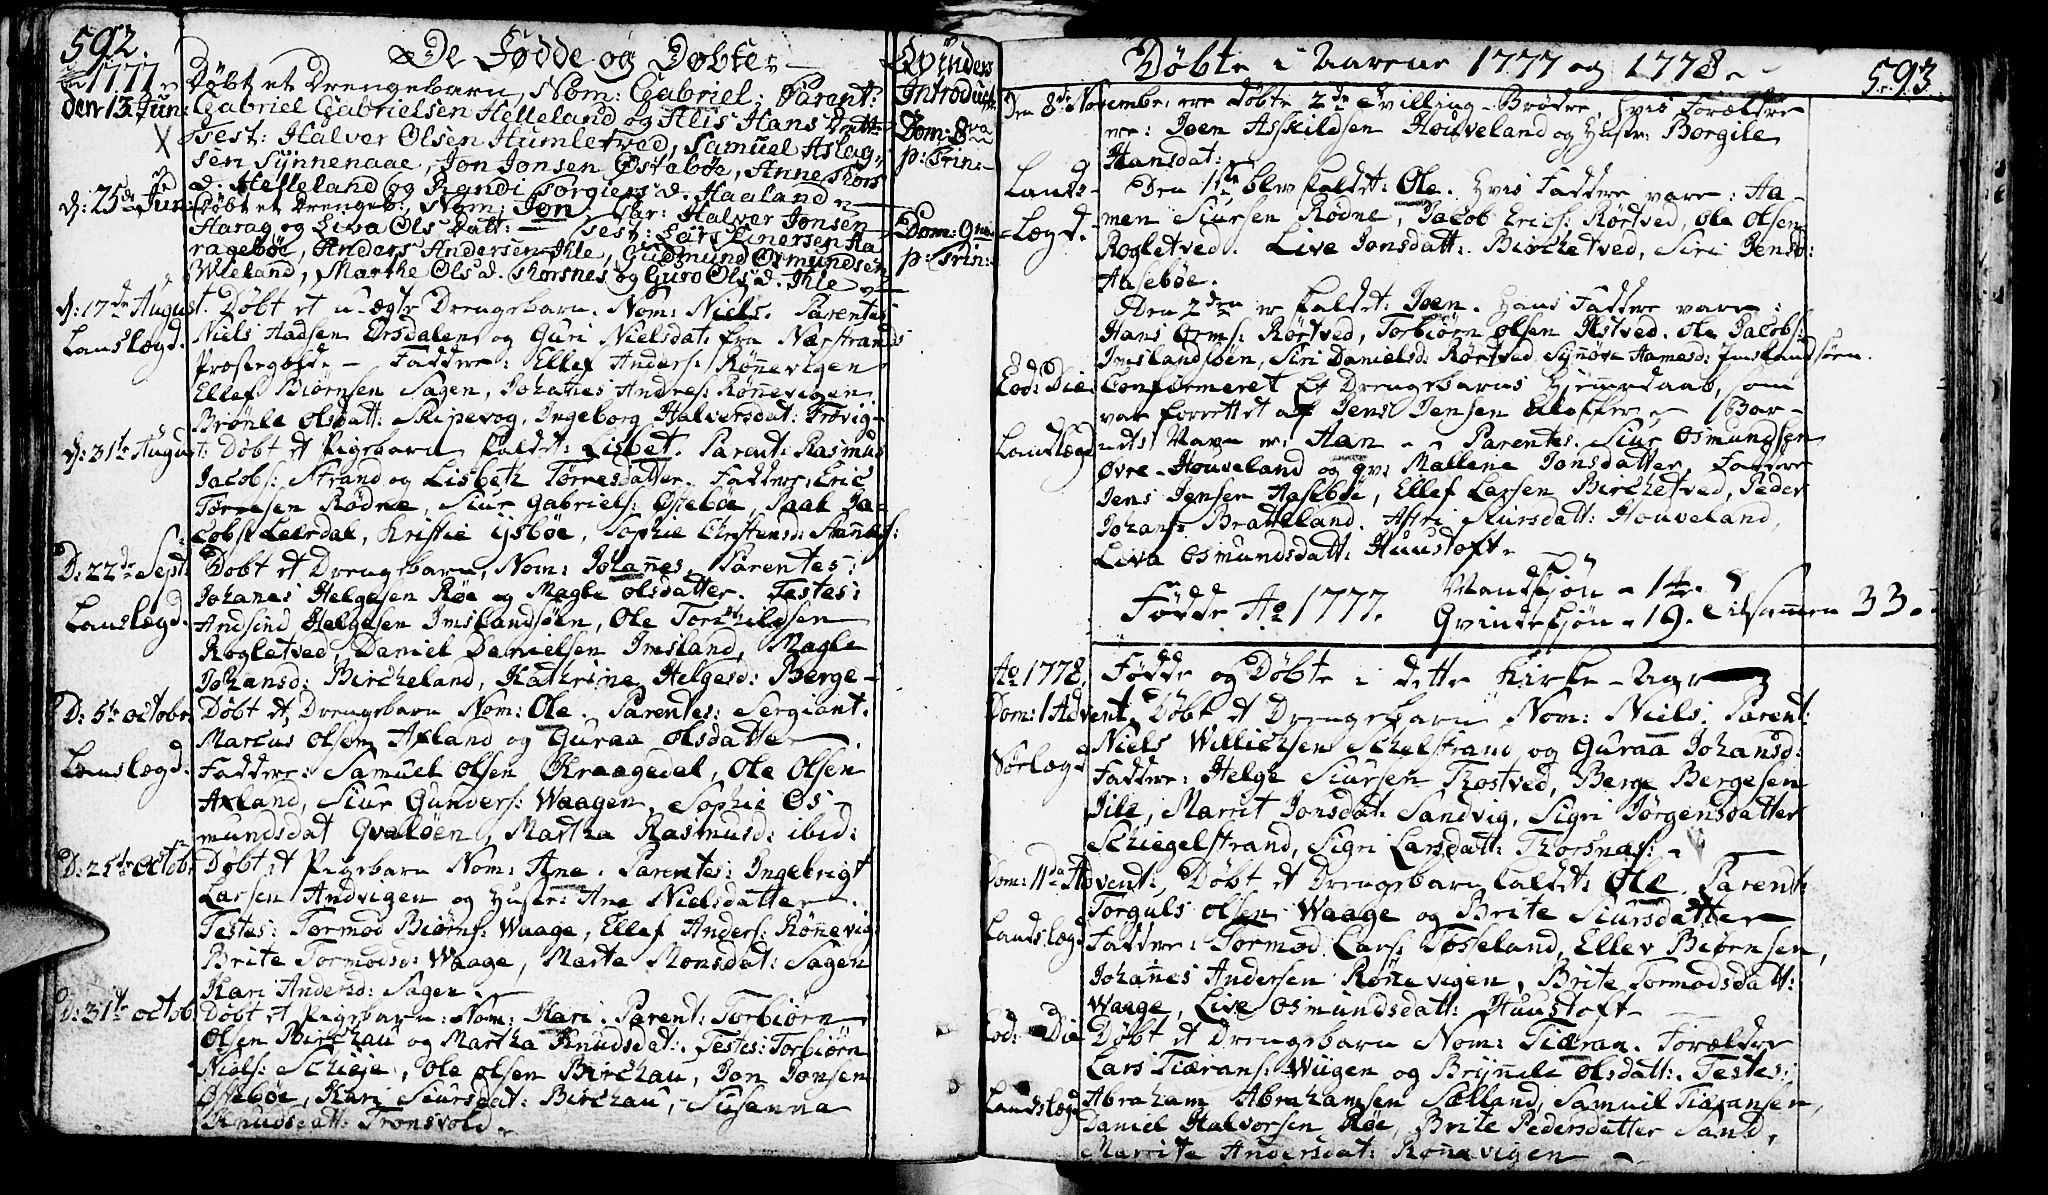 592.
De Fødde og Døbte
Qvinders
Introduct:
1777
Døbt et Drengebarn, Nom: Gabriel; Parent:
den 13 Jun: Gabriel Gabrielsen Helleland og Alis Hans Datt:
Dom: 8va
Test: Halver Olsen Humletved, Samuel Aslag,,
p: Trin:
sen Synnenaae, Jon Jonsen Østebøe, Anne Thors
d. Helleland og Randi Torgiers d. Haaland
d: 25de Jun: Døbt et Drengeb: Nom: Jon, Par: Halver Jonsen
Harag og Siva Ols Datt: Test: Lars Einersen Ha
Dom: 9na
ragebøe, Anders Andersen Ihle, Gudmund Osmundsen
p: Trin:
Wleland, Marthe Ols d. Thorsnes og Guro Ols d. Ihle
d: 17de August. Døbt et u-ægte Drengebarn. Nom: Niels. Parentes
Niels Aadsen Orsdalen og Guri Nielsdat: fra Nærstrands
Landlægd.
Prestegield. Faddere: Ellef Anders: Rønevigen
Ellef Biørnsen Sagen, Johannes Anders: Rønevigen.
Brønle Olsdatt: Skipevog, Ingeborg Halversdat: Frøvig
d: 31te August: Døbt et Pigebarn kaldet: Lisbet. Parent: Rasmus
Jacobs: Strand og Lisbeth Tørresdatter. Faddere, Eric
Tørresen Rødne, Siur Gabriels: Østebøe, Paal Ja-
cobs: Leerdal, Kristie Ijsbøe, Sophie Christensd:
D: 22de Sept: Døbt et Drengebarn, Nom: Johannes, Parentes:
Johanes Helgesen Røe og Magle olsdatter. Testes:
Landlægd.
Andsend Helgesen Imslandsøen, Ole Torchildsen
Rogletved, Daniel Danielsen Imsland, Magle
Johansd: Bircheland, Kathrine Helgesd: Berge-
D: 5te octobr. Døbt et Drengebarn Nom: Ole. Parentes: Sergiant.
Marcus Olsen Axland og Guraa olsdatter
Landlægd.
Faddere: Samuel olsen Kraagedal, Ole Olsen
Axland, Siur Gunders: Waagen, Sophie Os-
mundsdat Qvaløen, Martha Rasmusd: ibid:
D: 25de octob: Døbt et Pigebarn Nom: Ane. Parentes: Ingebrigt
Larsen Andvigen og Hustr: Ane Nielsdatter.
Testes: Tormod Biørns: Waage, Ellef Anders: Rønevig
Brite Tormodsd: Waage, Marte Monsdat: Sagen
Kari Andersd: Sagen.
D: 31te octob. Døbt et Pigebarn: Nom: Kari. Parent: Torbiørn
Olsen Birchau og Martha Knudsdat:. Testes: Torbiørn
Niels: Schieje, Ole olsen Birchau, Jon Jonsen
Østebøe, Kari Siursdat: Birchau, Susanna
Knudsdatt: Tronsvold.
Døbte i Aarene 1777 og 1778.
593.
Den 8de November ere døbte 2de Tvilling-Brødre, hvis Forældre
ere: Joen Askildsen Houveland og Hustr: Borgile
Hansdat:
Lands-
Lægd.
Den 1ste blev kaldet: Ole. Hvis Faddere vare: Aa-
men Siursen Rødne, Jacob Erics: Rørtved, Ole Olsen
Rogletved. Live Jonsdatt: Birchetved, Siri Jensd:
Aasebøe.
Den 2den er kaldet: Joen. Hans Faddere vare:
Hans Orms: Rørtved, Torbiørn olsen Østved. Ole Jacobs:
Imslandsøen, Siri Danielsd: Rørtved, Synøve Aamesd: Imslandsøen.
Eod: Die Confirmeret Et Drengebarns Hjemedaab, som
var forrettet af Jens Jensen Kloster. Bar-
Landlægd
nets Navn er: Aan. Parentes. Siur Osmundsen
Øvre-Houveland og qv: Mallene Jonsdatter, Faddere
Jens Jensen Aasebøe, Ellef Larsen Birchetved, Peder
Johans: Bratteland. Astri Siursdatt: Houveland,
Liva Osmundsdatt: Huustoft.
Fødde Ao 1777. Mandkjøn - 14.
Qvindekjøn - 19. Tilsamen 33.
Ao 1778. Fødde og Døbte i dette Kirke-Aar
Dom: 1 Advent. Døbt et Drengebarn Nom: Niels. Parent:
Niels Willichsen Schelstrand og Guraa Johansd:
Sørlægd
Faddere: Helge Siursen Tostved, Berge Bergesen
Jile, Marrit Jonsdat: Sandvig, Sigri Jørgensdatter
Schiegelstrand, Sigri Larsdatt: Thorsnæs:
Dom: 11da Advent:, Døbt et Drengebarn kaldet: Ole. Parent:
Torguls olsen Waage og Brite Siursdatter
Landslægd
Faddere: Tormod Lars: Tøsseland, Ellev Biørnsen,
Johannes Andersen Rønevigen, Brite Tormodsdatt:
Waage, Live Osmundsdatt: Huustoft
Eod: Die Døbt et Drengebarn Nom: Tiæran. Forældre
Lars Tiærans: Wiigen og Brynele Olsdatt:. Testes:
Landslægd
Abraham Abrahamsen Sælland, Samuel Tiæransen,
Daniel Halvorsen Røe, Brite Pedersdatter Sand,
Marrite Andersdat: Rønevigen